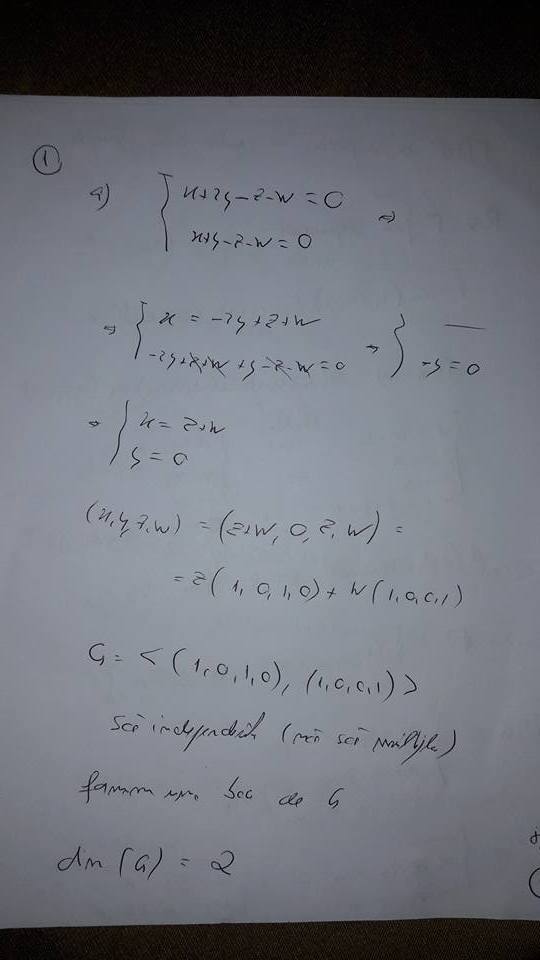 ①
a) { x+2y-z-w=0 ⇔
x+y-z-w=0
⇔ { x = -2y+z+w
-2y+z+w+y-z-w=0 ⇔ { —
-y=0
⇔ { x = z+w
y=0
(x,y,z,w) = (z+w, 0, z, w) =
= z(1,0,1,0) + w(1,0,0,1)
G = <(1,0,1,0), (1,0,0,1)>
São independentes (não são múltiplos)
formam uma base de G
dim(G) = 2